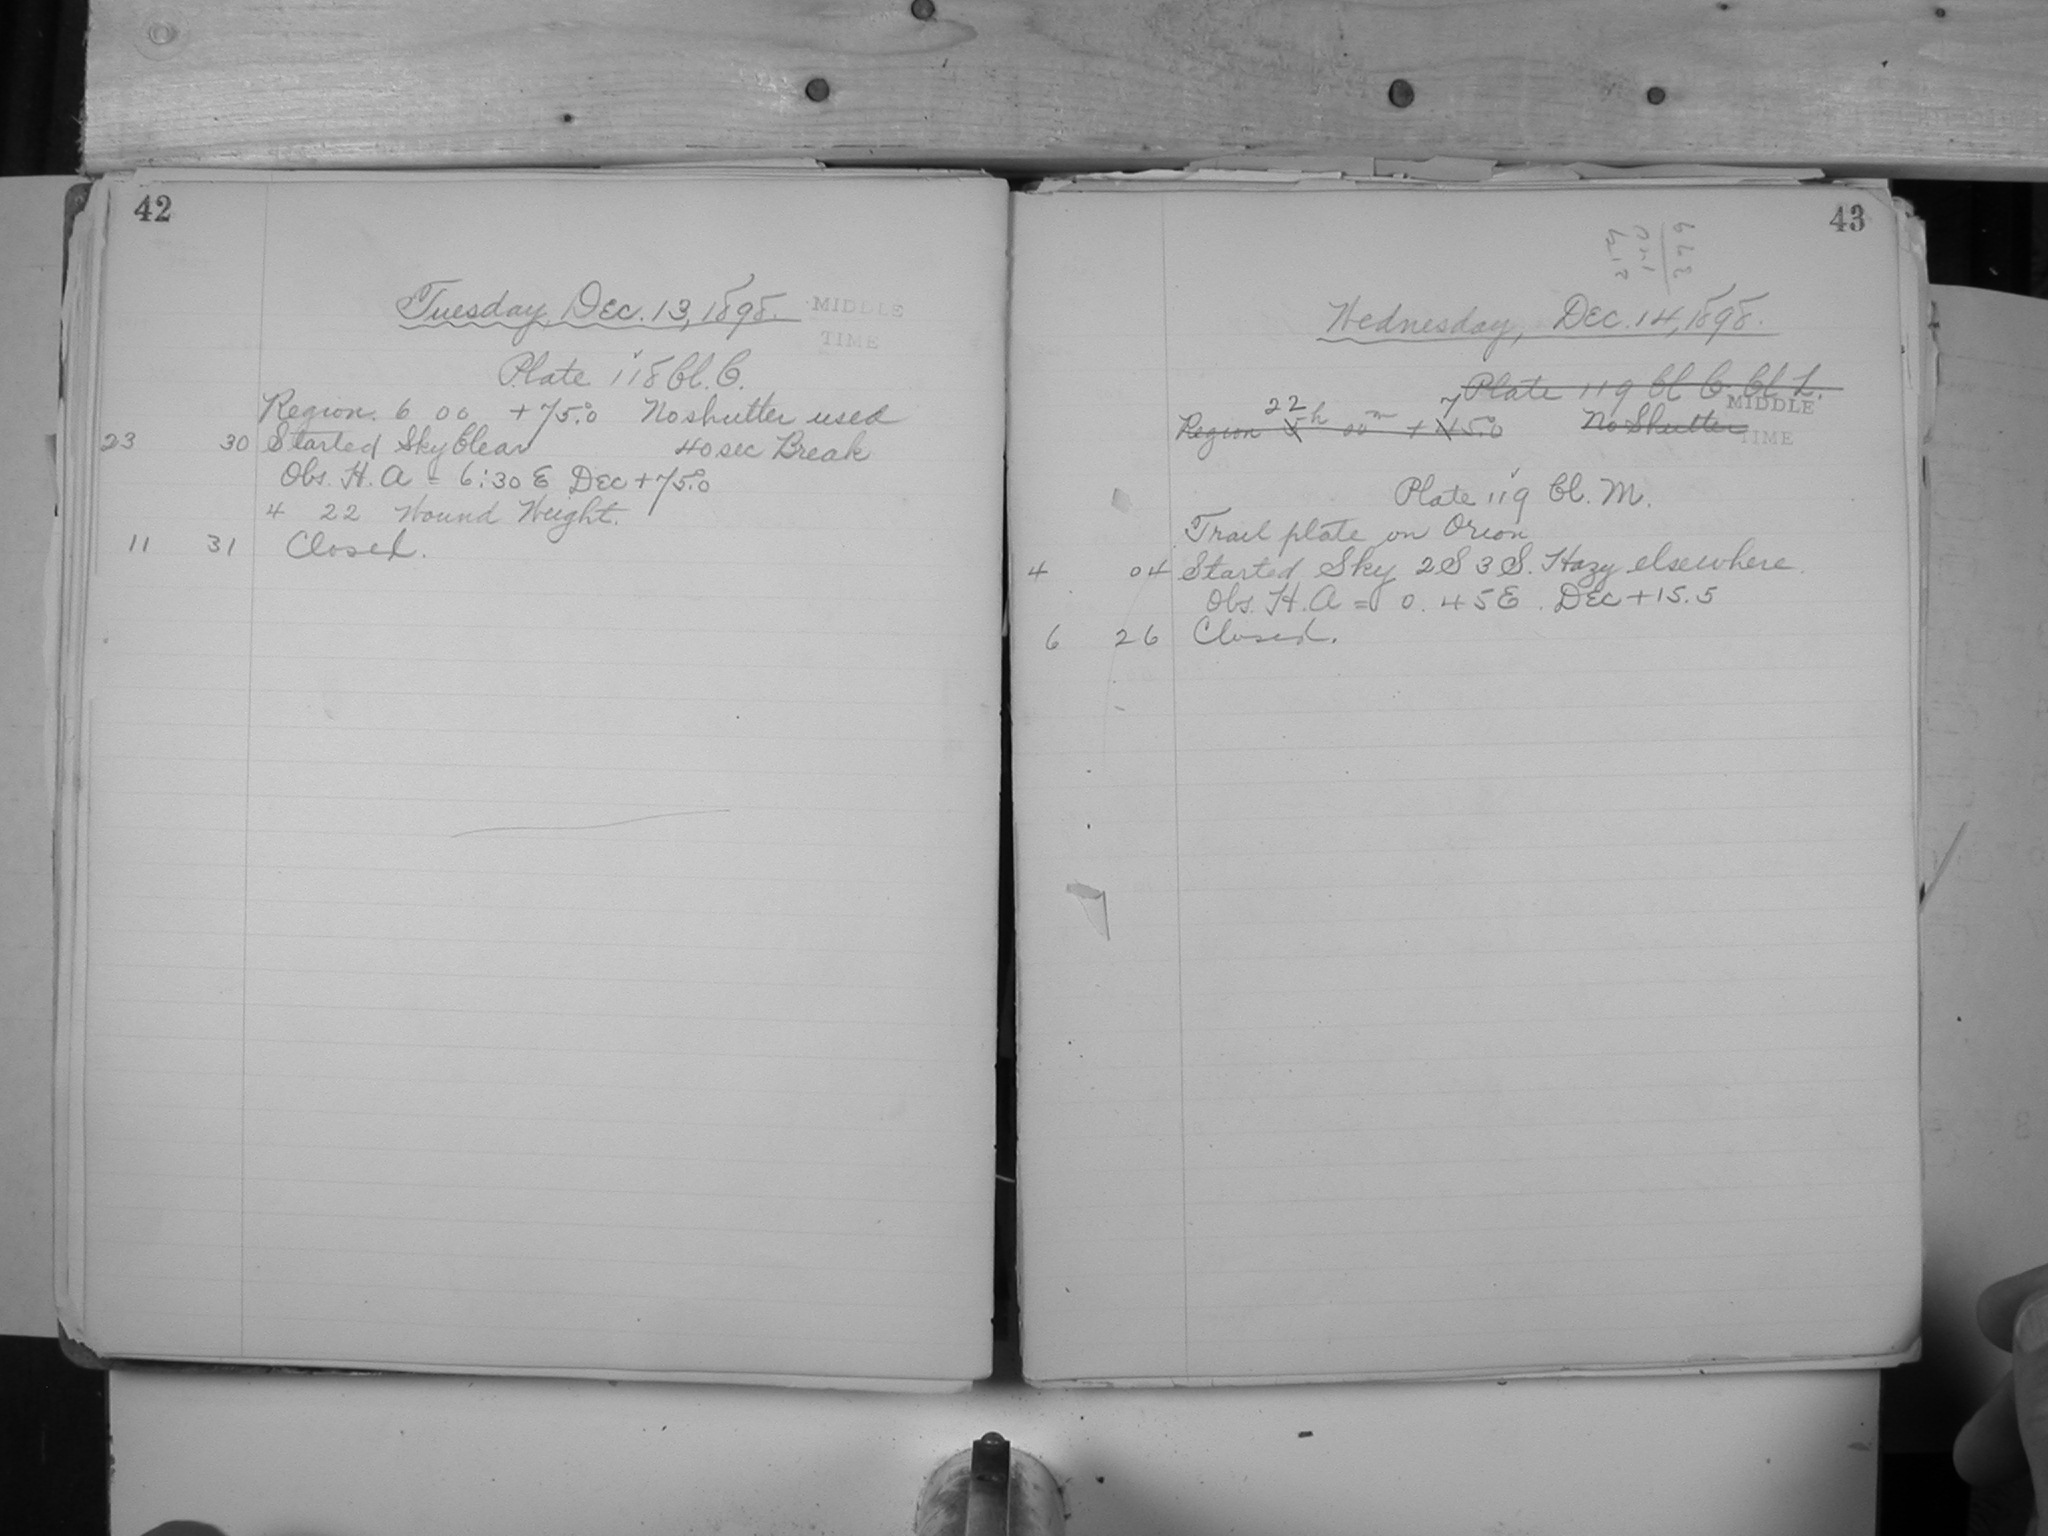 42
Tuesday, Dec. 13, 1898.
MIDDLE
TIME
Plate 118 Cl. C.
Region. 6 00 +75°.0 No shutter used
23 30 Started Sky Clear 40 sec Break
Obs. H.A = 6:30 E Dec +75°.0
4 22 Wound Weight.
11 31 Closed.
43
Wednesday, Dec. 14, 1898.
Plate 119 Cl C. Cl L.
MIDDLE
TIME
22 7
Region 5h 00m +45°.0 No Shutter
Plate 119 Cl. M.
Trail plate on Orion
4 04 Started Sky 2S 3S. Hazy elsewhere.
Obs. H.A = 0.45E. Dec +15.5
6 26 Closed.